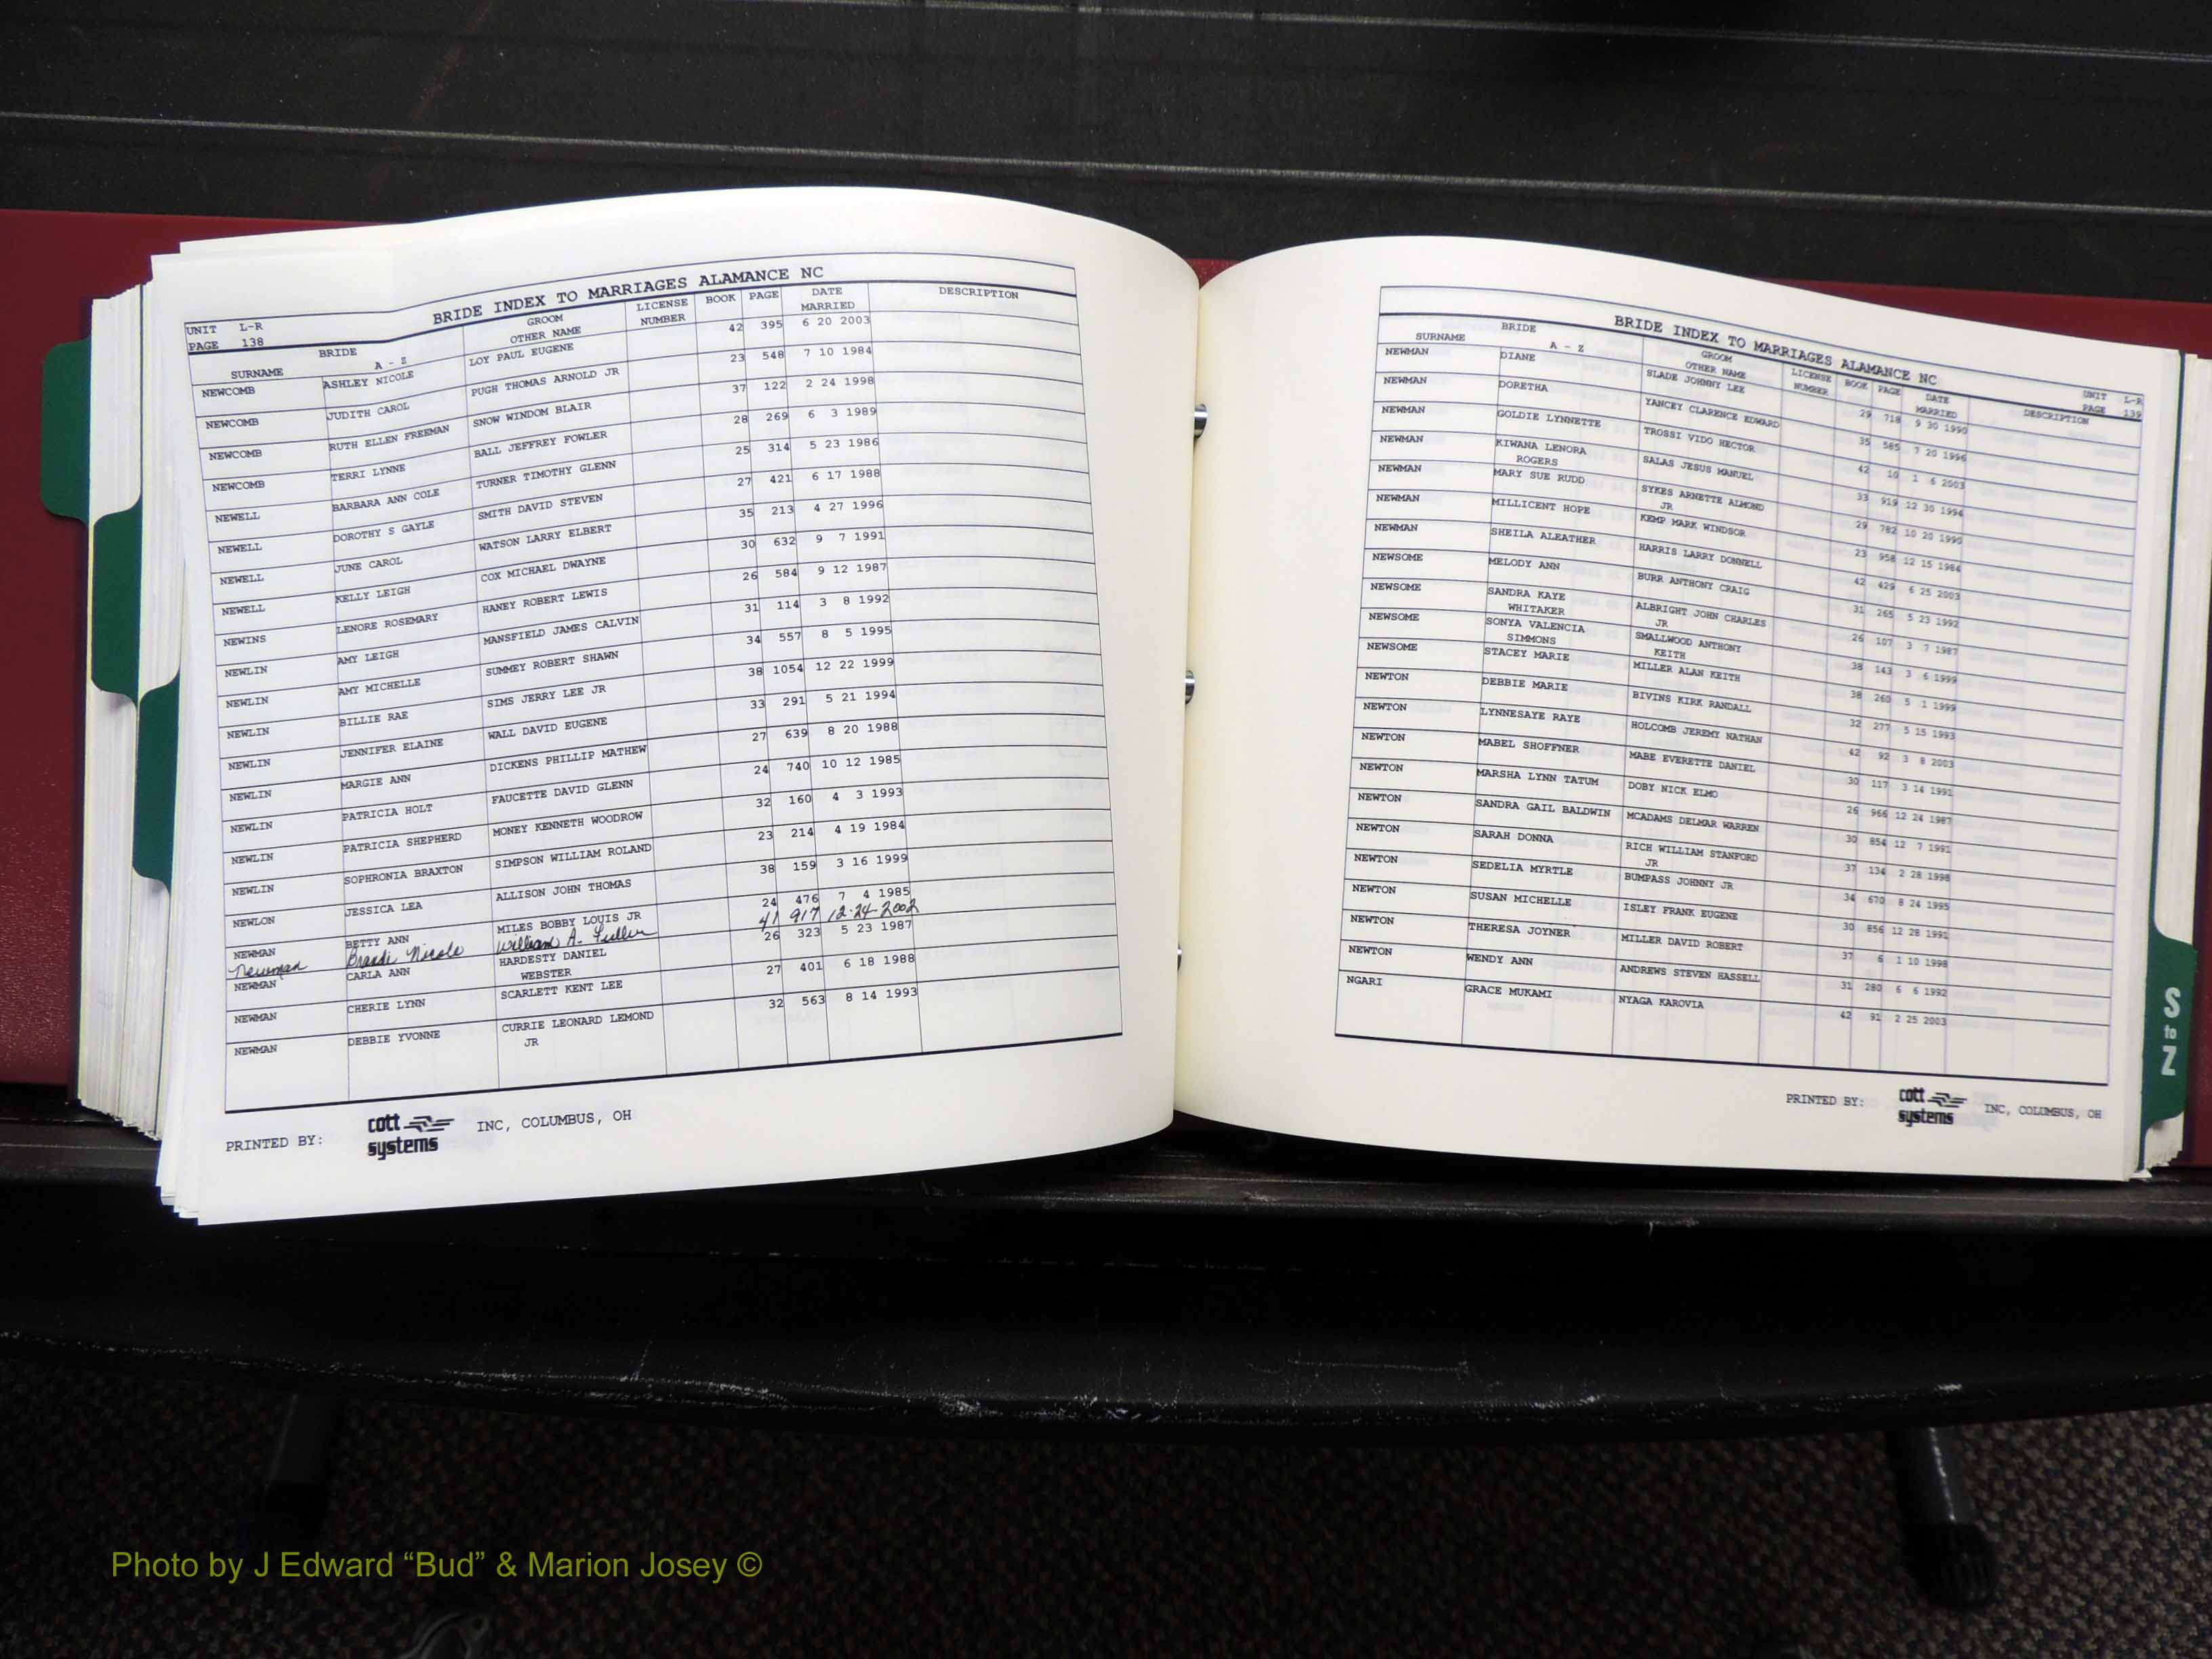 BRIDE INDEX TO MARRIAGES ALAMANCE NC
UNIT L-R
PAGE 138
BRIDE GROOM LICENSE BOOK PAGE DATE DESCRIPTION
SURNAME A - Z OTHER NAME NUMBER MARRIED
NEWCOMB ASHLEY NICOLE LOY PAUL EUGENE 42 395 6 20 2003
NEWCOMB JUDITH CAROL PUGH THOMAS ARNOLD JR 23 548 7 10 1984
NEWCOMB RUTH ELLEN FREEMAN SNOW WINDOM BLAIR 37 122 2 24 1998
NEWCOMB TERRI LYNNE BALL JEFFREY FOWLER 28 269 6 3 1989
NEWELL BARBARA ANN COLE TURNER TIMOTHY GLENN 25 314 5 23 1986
NEWELL DOROTHY S GAYLE SMITH DAVID STEVEN 27 421 6 17 1988
NEWELL JUNE CAROL WATSON LARRY ELBERT 35 213 4 27 1996
NEWELL KELLY LEIGH COX MICHAEL DWAYNE 30 632 9 7 1991
NEWINS LENORE ROSEMARY HANEY ROBERT LEWIS 26 584 9 12 1987
NEWLIN AMY LEIGH MANSFIELD JAMES CALVIN 31 114 3 8 1992
NEWLIN AMY MICHELLE SUMMEY ROBERT SHAWN 34 557 8 5 1995
NEWLIN BILLIE RAE SIMS JERRY LEE JR 38 1054 12 22 1999
NEWLIN JENNIFER ELAINE WALL DAVID EUGENE 33 291 5 21 1994
NEWLIN MARGIE ANN DICKENS PHILLIP MATHEW 27 639 8 20 1988
NEWLIN PATRICIA HOLT FAUCETTE DAVID GLENN 24 740 10 12 1985
NEWLIN PATRICIA SHEPHERD MONEY KENNETH WOODROW 32 160 4 3 1993
NEWLIN SOPHRONIA BRAXTON SIMPSON WILLIAM ROLAND 23 214 4 19 1984
NEWLON JESSICA LEA ALLISON JOHN THOMAS 38 159 3 16 1999
NEWMAN BETTY ANN MILES BOBBY LOUIS JR 24 476 7 4 1985
Newman Brandi Nicole William A. Fuller 41 917 12-24-2002
NEWMAN CARLA ANN HARDESTY DANIEL 26 323 5 23 1987
WEBSTER
NEWMAN CHERIE LYNN SCARLETT KENT LEE 27 401 6 18 1988
NEWMAN DEBBIE YVONNE CURRIE LEONARD LEMOND 32 563 8 14 1993
JR
PRINTED BY: cott systems INC, COLUMBUS, OH
BRIDE INDEX TO MARRIAGES ALAMANCE NC
UNIT L-R
PAGE 139
BRIDE GROOM LICENSE BOOK PAGE DATE DESCRIPTION
SURNAME A - Z OTHER NAME NUMBER MARRIED
NEWMAN DIANE SLADE JOHNNY LEE 29 718 9 30 1990
NEWMAN DORETHA YANCEY CLARENCE EDWARD 35 585 7 20 1996
NEWMAN GOLDIE LYNNETTE TROSSI VIDO HECTOR 42 10 1 6 2003
NEWMAN KIWANA LENORA SALAS JESUS MANUEL 33 919 12 30 1994
ROGERS
NEWMAN MARY SUE RUDD SYKES ARNETTE ALMOND 29 782 10 20 1990
JR
NEWMAN MILLICENT HOPE KEMP MARK WINDSOR 23 958 12 15 1984
NEWMAN SHEILA ALEATHER HARRIS LARRY DONNELL 42 429 6 25 2003
NEWSOME MELODY ANN BURR ANTHONY CRAIG 31 265 5 23 1992
NEWSOME SANDRA KAYE ALBRIGHT JOHN CHARLES 26 107 3 7 1987
WHITAKER JR
NEWSOME SONYA VALENCIA SMALLWOOD ANTHONY 38 143 3 6 1999
SIMMONS KEITH
NEWSOME STACEY MARIE MILLER ALAN KEITH 38 260 5 1 1999
NEWTON DEBBIE MARIE BIVINS KIRK RANDALL 32 277 5 15 1993
NEWTON LYNNESAYE RAYE HOLCOMB JEREMY NATHAN 42 92 3 8 2003
NEWTON MABEL SHOFFNER MABE EVERETTE DANIEL 30 117 3 14 1991
NEWTON MARSHA LYNN TATUM DOBY NICK ELMO 26 966 12 24 1987
NEWTON SANDRA GAIL BALDWIN MCADAMS DELMAR WARREN 30 854 12 7 1991
NEWTON SARAH DONNA RICH WILLIAM STANFORD 37 134 2 28 1998
JR
NEWTON SEDELIA MYRTLE BUMPASS JOHNNY JR 34 670 8 24 1995
NEWTON SUSAN MICHELLE ISLEY FRANK EUGENE 30 856 12 28 1991
NEWTON THERESA JOYNER MILLER DAVID ROBERT 37 6 1 10 1998
NEWTON WENDY ANN ANDREWS STEVEN HASSELL 31 280 6 6 1992
NGARI GRACE MUKAMI NYAGA KAROVIA 42 91 2 25 2003
PRINTED BY: cott systems INC, COLUMBUS, OH
S
to
Z
Photo by J Edward “Bud” & Marion Josey ©